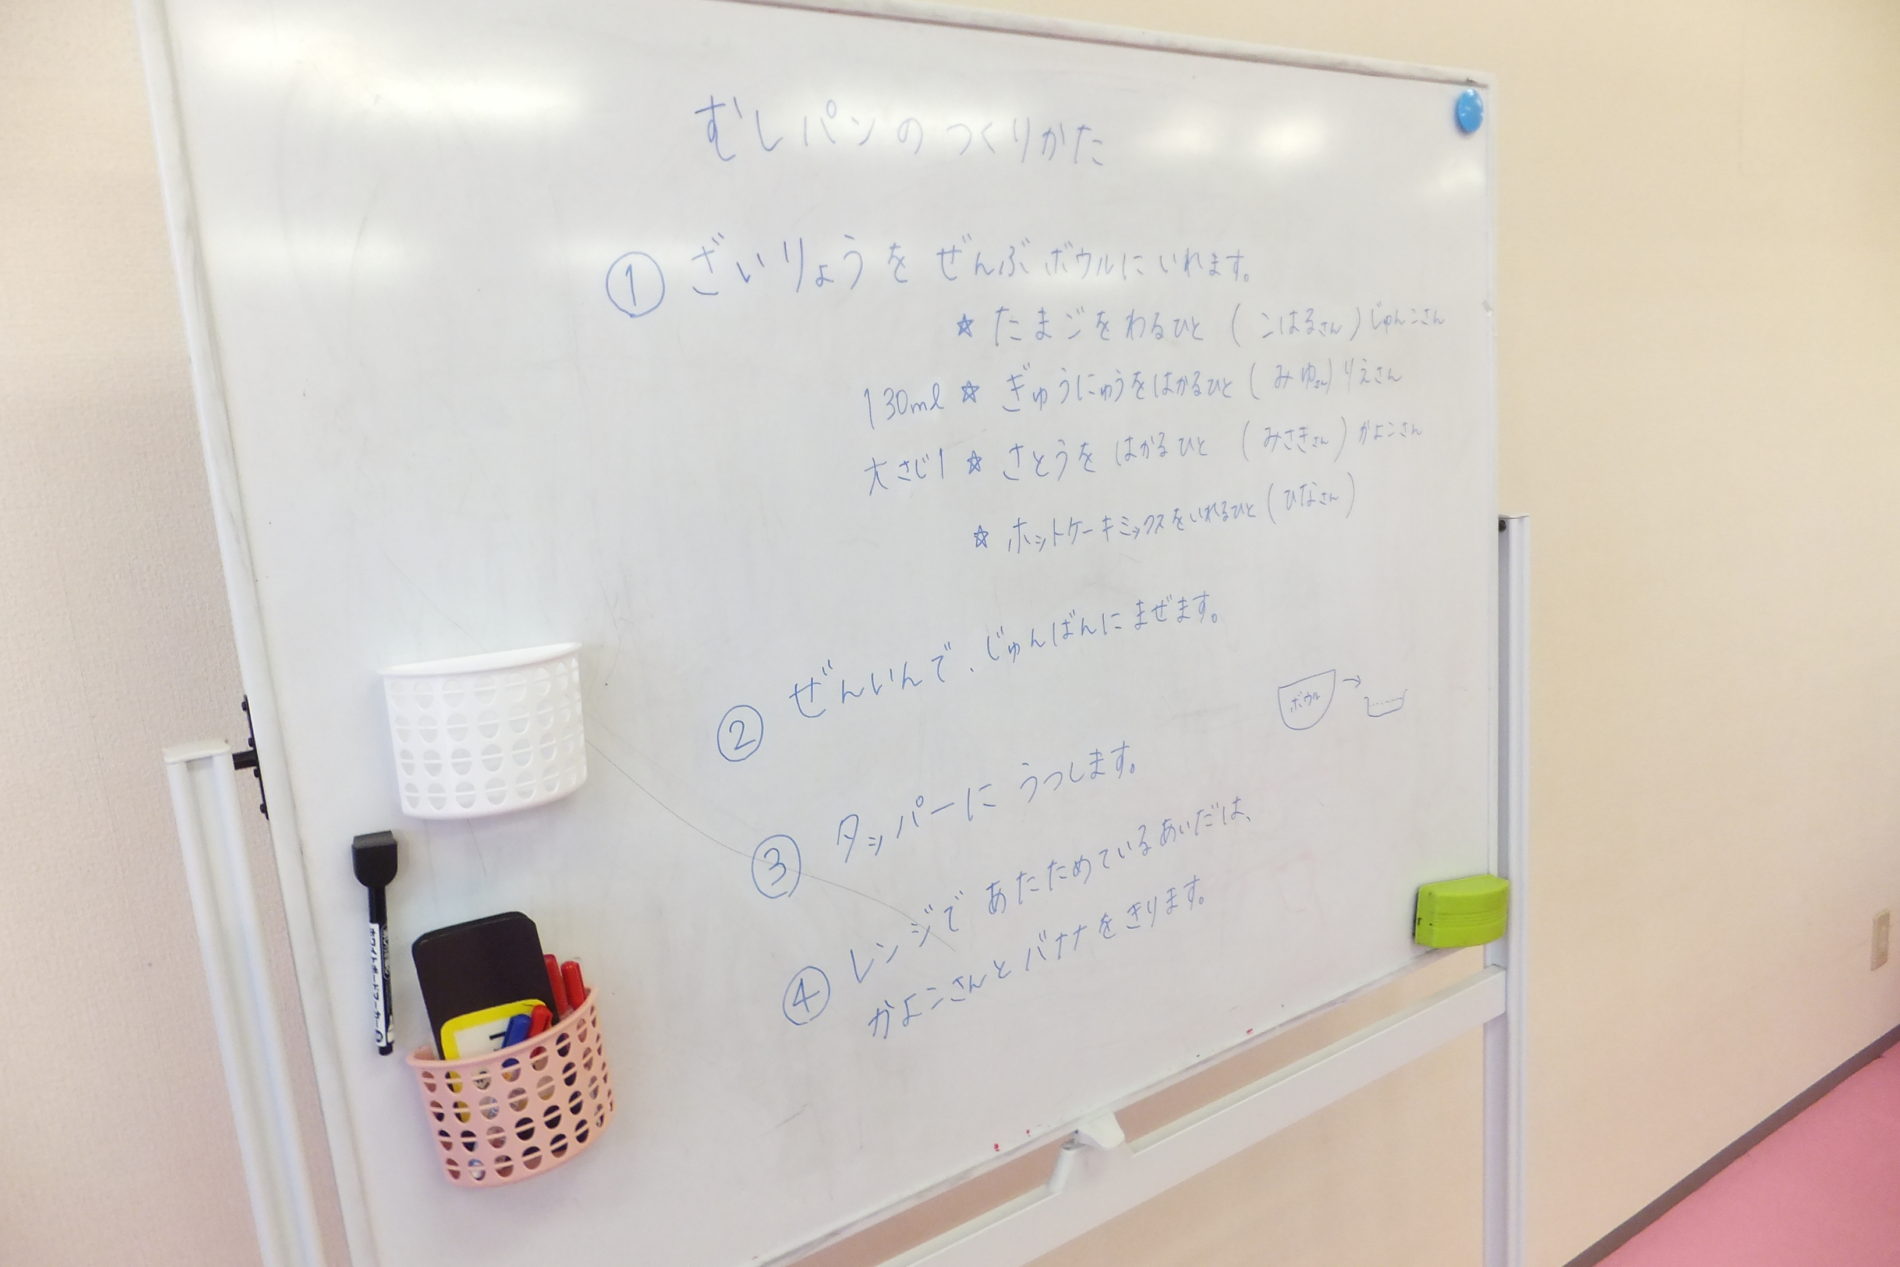 むしパンのつくりかた
① ざいりょうを ぜんぶ ボウルに いれます。
☆ たまごを わるひと (こはるさん) じゅんこさん
130ml ☆ ぎゅうにゅうをはかるひと (みゆさん) りえさん
大さじ1 ☆ さとうを はかるひと (みさきさん) かよこさん
☆ ホットケーキミックスをいれるひと (ひなさん)
② ぜんいんで、じゅんばんに まぜます。
ボウル →
③ タッパーに うつします。
④ レンジで あたためているあいだは、
かよこさんと バナナを きります。
ホワイトボードマーカー